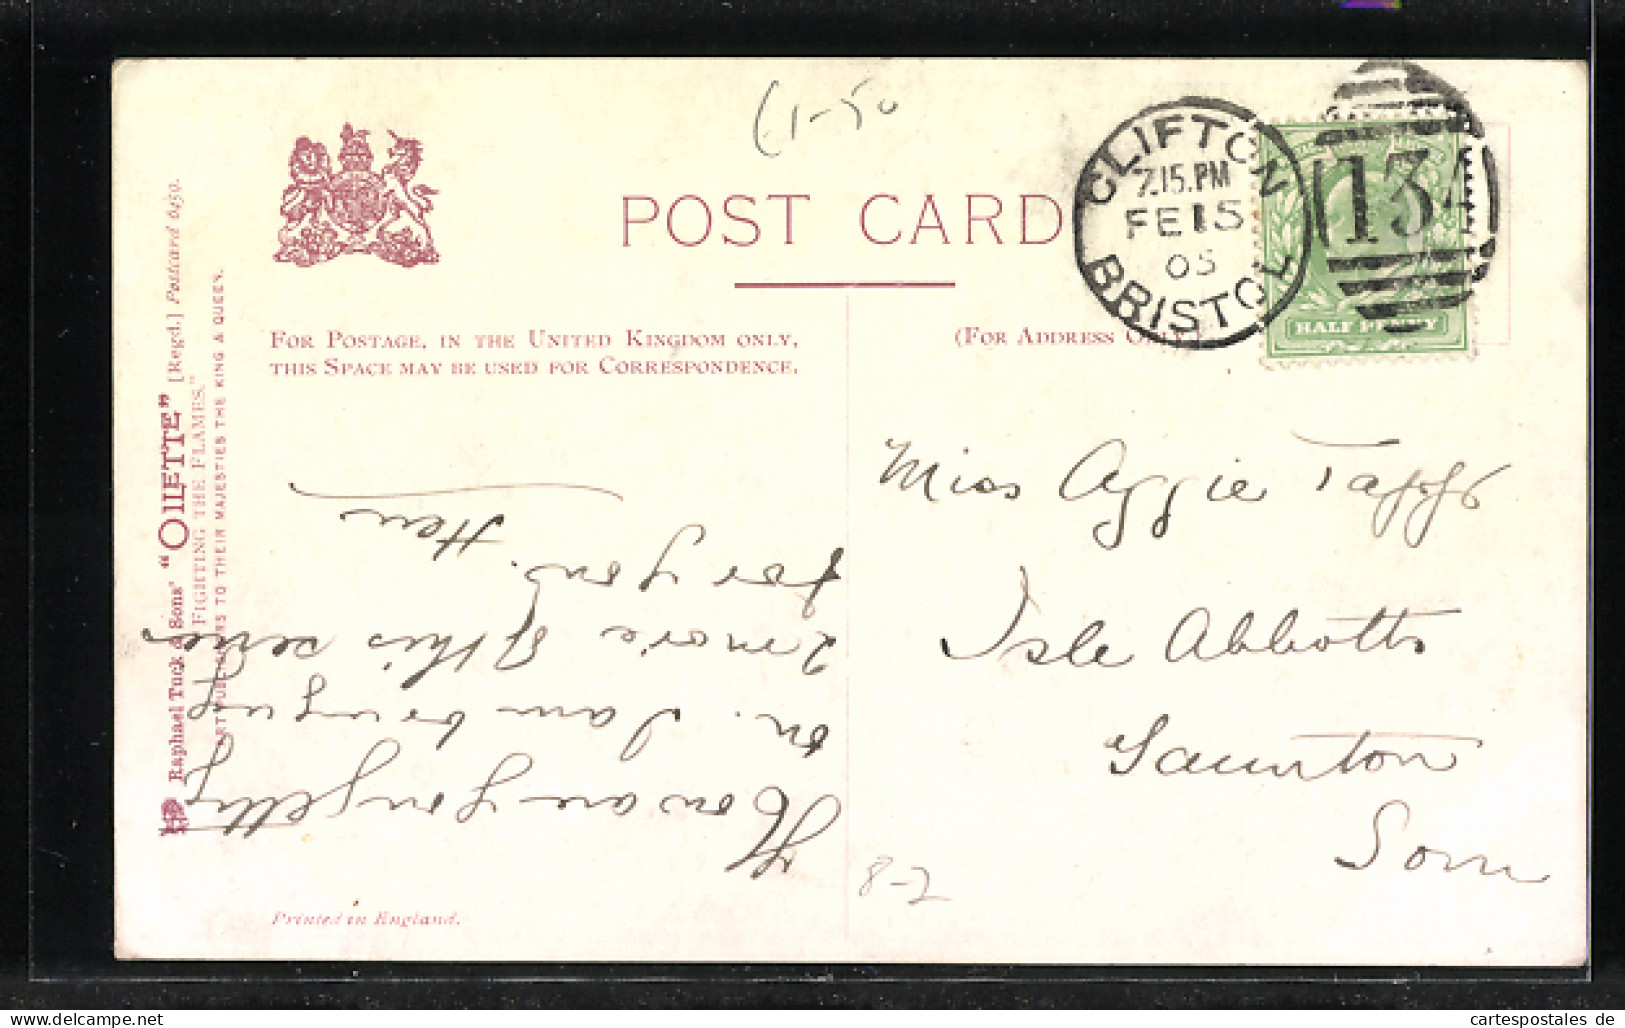 £1-50
POST CARD
CLIFTON
7.15.PM
FE 15
05
BRISTOL
134
HALF PENNY
FOR POSTAGE, IN THE UNITED KINGDOM ONLY,
THIS SPACE MAY BE USED FOR CORRESPONDENCE.
(FOR ADDRESS ONLY)
Raphael Tuck & Sons' "OILETTE" [Regd.] Postcard 6459.
FIGHTING THE FLAMES."
ART PUBLISHERS TO THEIR MAJESTIES THE KING & QUEEN.
How are you getting
on. I am bringing
2 more of this series
for you.
Miss Aggie
Isle Abbotts
Taunton
Som
8-2
Printed in England.
cartespostales de